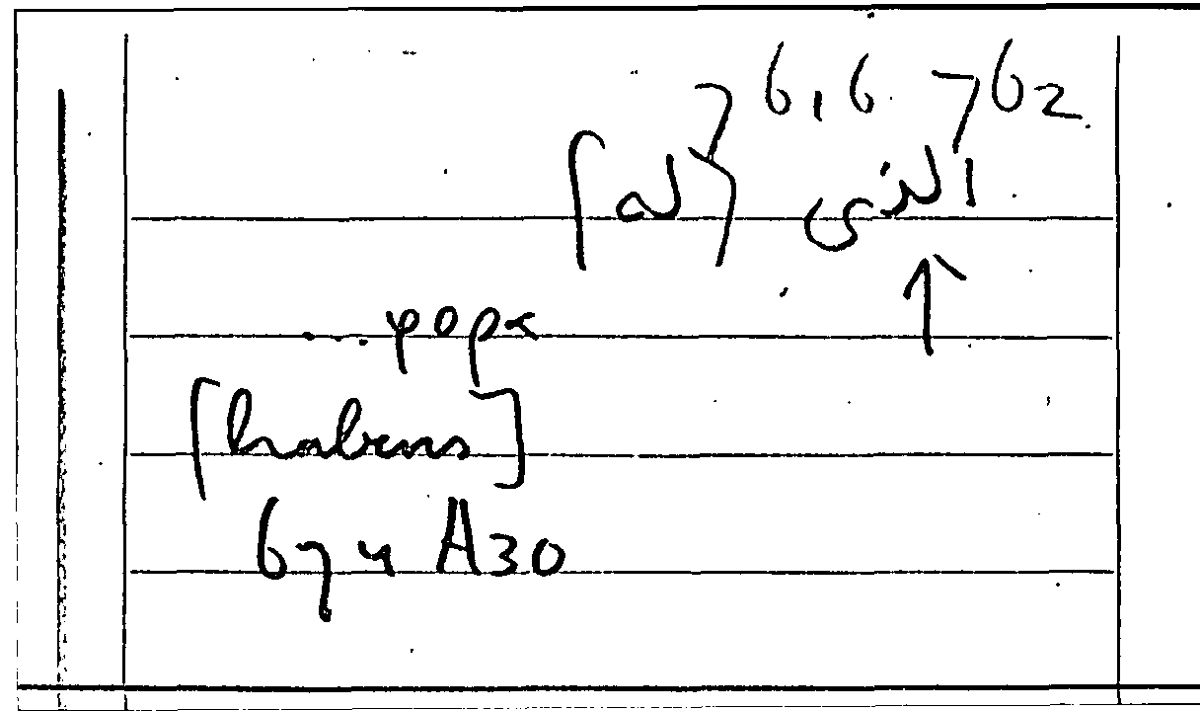 616 762
الذي [له]
...φορα
[habens]
674 A30